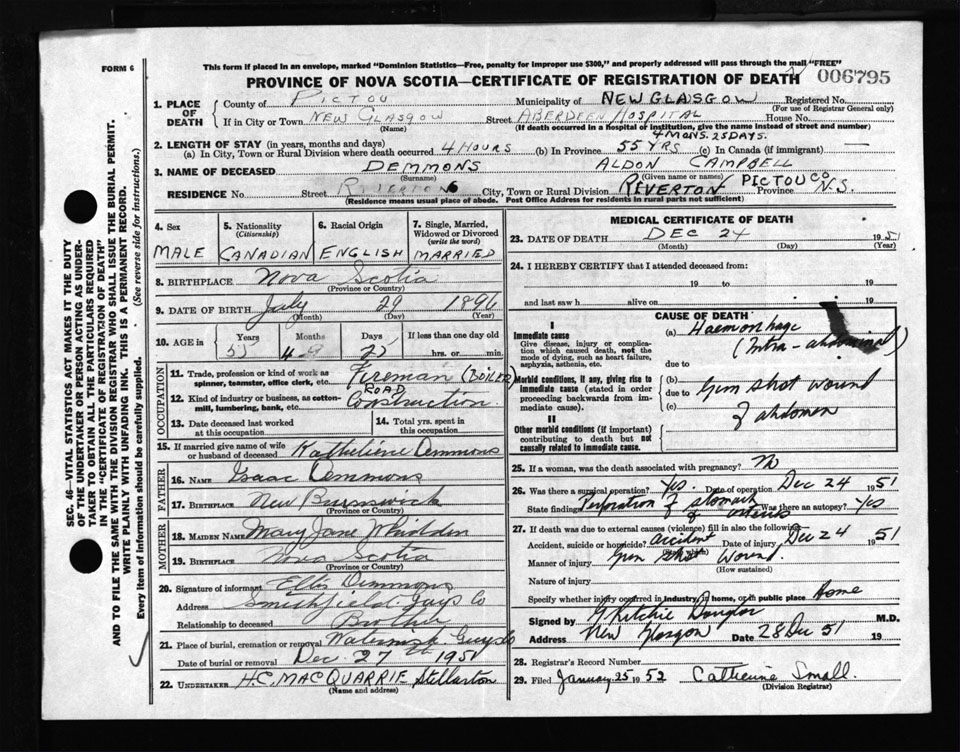 FORM 6
This form if placed in an envelope, marked "Dominion Statistics—Free, penalty for improper use $300," and properly addressed will pass through the mail "FREE"
PROVINCE OF NOVA SCOTIA—CERTIFICATE OF REGISTRATION OF DEATH 006795
1. PLACE OF DEATH
County of PICTOU Municipality of NEW GLASGOW Registered No.
(For use of Registrar General only)
If in City or Town NEW GLASGOW Street ABERDEEN HOSPITAL House No.
(Name) (If death occurred in a hospital or institution, give the name instead of street and number)
2. LENGTH OF STAY (in years, months and days)
(a) In City, Town or Rural Division where death occurred 4 HOURS (b) In Province 55 YRS 4 MONS. 25 DAYS. (c) In Canada (if immigrant) —
3. NAME OF DECEASED DEMMONS ALDON CAMPBELL
(Surname) (Given name or names)
RESIDENCE No. Street RIVERTON City, Town or Rural Division RIVERTON PICTOU CO Province N.S.
(Residence means usual place of abode. Post Office Address for residents in rural parts not sufficient)
4. Sex MALE
5. Nationality (Citizenship) CANADIAN
6. Racial Origin ENGLISH
7. Single, Married, Widowed or Divorced (write the word) MARRIED
8. BIRTHPLACE Nova Scotia
(Province or Country)
9. DATE OF BIRTH July 29 1896
(Month) (Day) (Year)
10. AGE in Years Months Days If less than one day old
55 4 25 hrs. or min.
OCCUPATION
11. Trade, profession or kind of work as spinner, teamster, office clerk, etc. Fireman (BOILER)
12. Kind of industry or business, as cotton-mill, lumbering, bank, etc. ROAD Construction
13. Date deceased last worked at this occupation
14. Total yrs. spent in this occupation
15. If married give name of wife or husband of deceased Kathelene Demmons
FATHER
16. NAME Isaac Demmons
17. BIRTHPLACE New Burnswick
(Province or Country)
MOTHER
18. MAIDEN NAME Mary Jane Whidden
19. BIRTHPLACE Nova Scotia
(Province or Country)
20. Signature of informant Demmons
Address Smithfield Guys Co
Relationship to deceased Brother
21. Place of burial, cremation or removal Guys Co
Date of burial or removal Dec. 27th 1951
22. UNDERTAKER H.C. MACQUARRIE Stellarton
(Name and address)
MEDICAL CERTIFICATE OF DEATH
23. DATE OF DEATH DEC 24 1951
(Month) (Day) (Year)
24. I HEREBY CERTIFY that I attended deceased from:
19 to 19
and last saw h alive on 19
CAUSE OF DEATH
I
Immediate cause
Give disease, injury or complication which caused death, not the mode of dying, such as heart failure, asphyxia, asthenia, etc.
(a) Haemorrhage (Intra-abdominal)
due to
Morbid conditions, if any, giving rise to immediate cause (stated in order proceeding backwards from immediate cause).
(b) Gun shot wound
due to
(c) of abdomen
II
Other morbid conditions (if important) contributing to death but not causally related to immediate cause.
25. If a woman, was the death associated with pregnancy? No
26. Was there a surgical operation? Yes. Date of operation Dec 24 1951
State finding Perforation of stomach Was there an autopsy? Yes
27. If death was due to external causes (violence) fill in also the following:
Accident, suicide or homicide? accident Date of injury Dec 24 1951
(State which)
Manner of injury Gun shot wound.
(How sustained)
Nature of injury
Specify whether injury occurred in industry, in home, or in public place Home
Signed by G Ritchie Douglas M.D.
Address New Glasgow Date 28 Dec 51 19
28. Registrar's Record Number
29. Filed January 25 1952 Catherine Small.
(Division Registrar)
SEC. 46—VITAL STATISTICS ACT MAKES IT THE DUTY
OF THE UNDERTAKER OR PERSON ACTING AS UNDER-
TAKER TO OBTAIN ALL THE PARTICULARS REQUIRED
IN THE "CERTIFICATE OF REGISTRATION OF DEATH"
AND TO FILE THE SAME WITH THE DIVISION REGISTRAR WHO SHALL ISSUE THE BURIAL PERMIT.
WRITE PLAINLY WITH UNFADING INK. THIS IS A PERMANENT RECORD.
Every item of information should be carefully supplied. (See reverse side for instructions.)